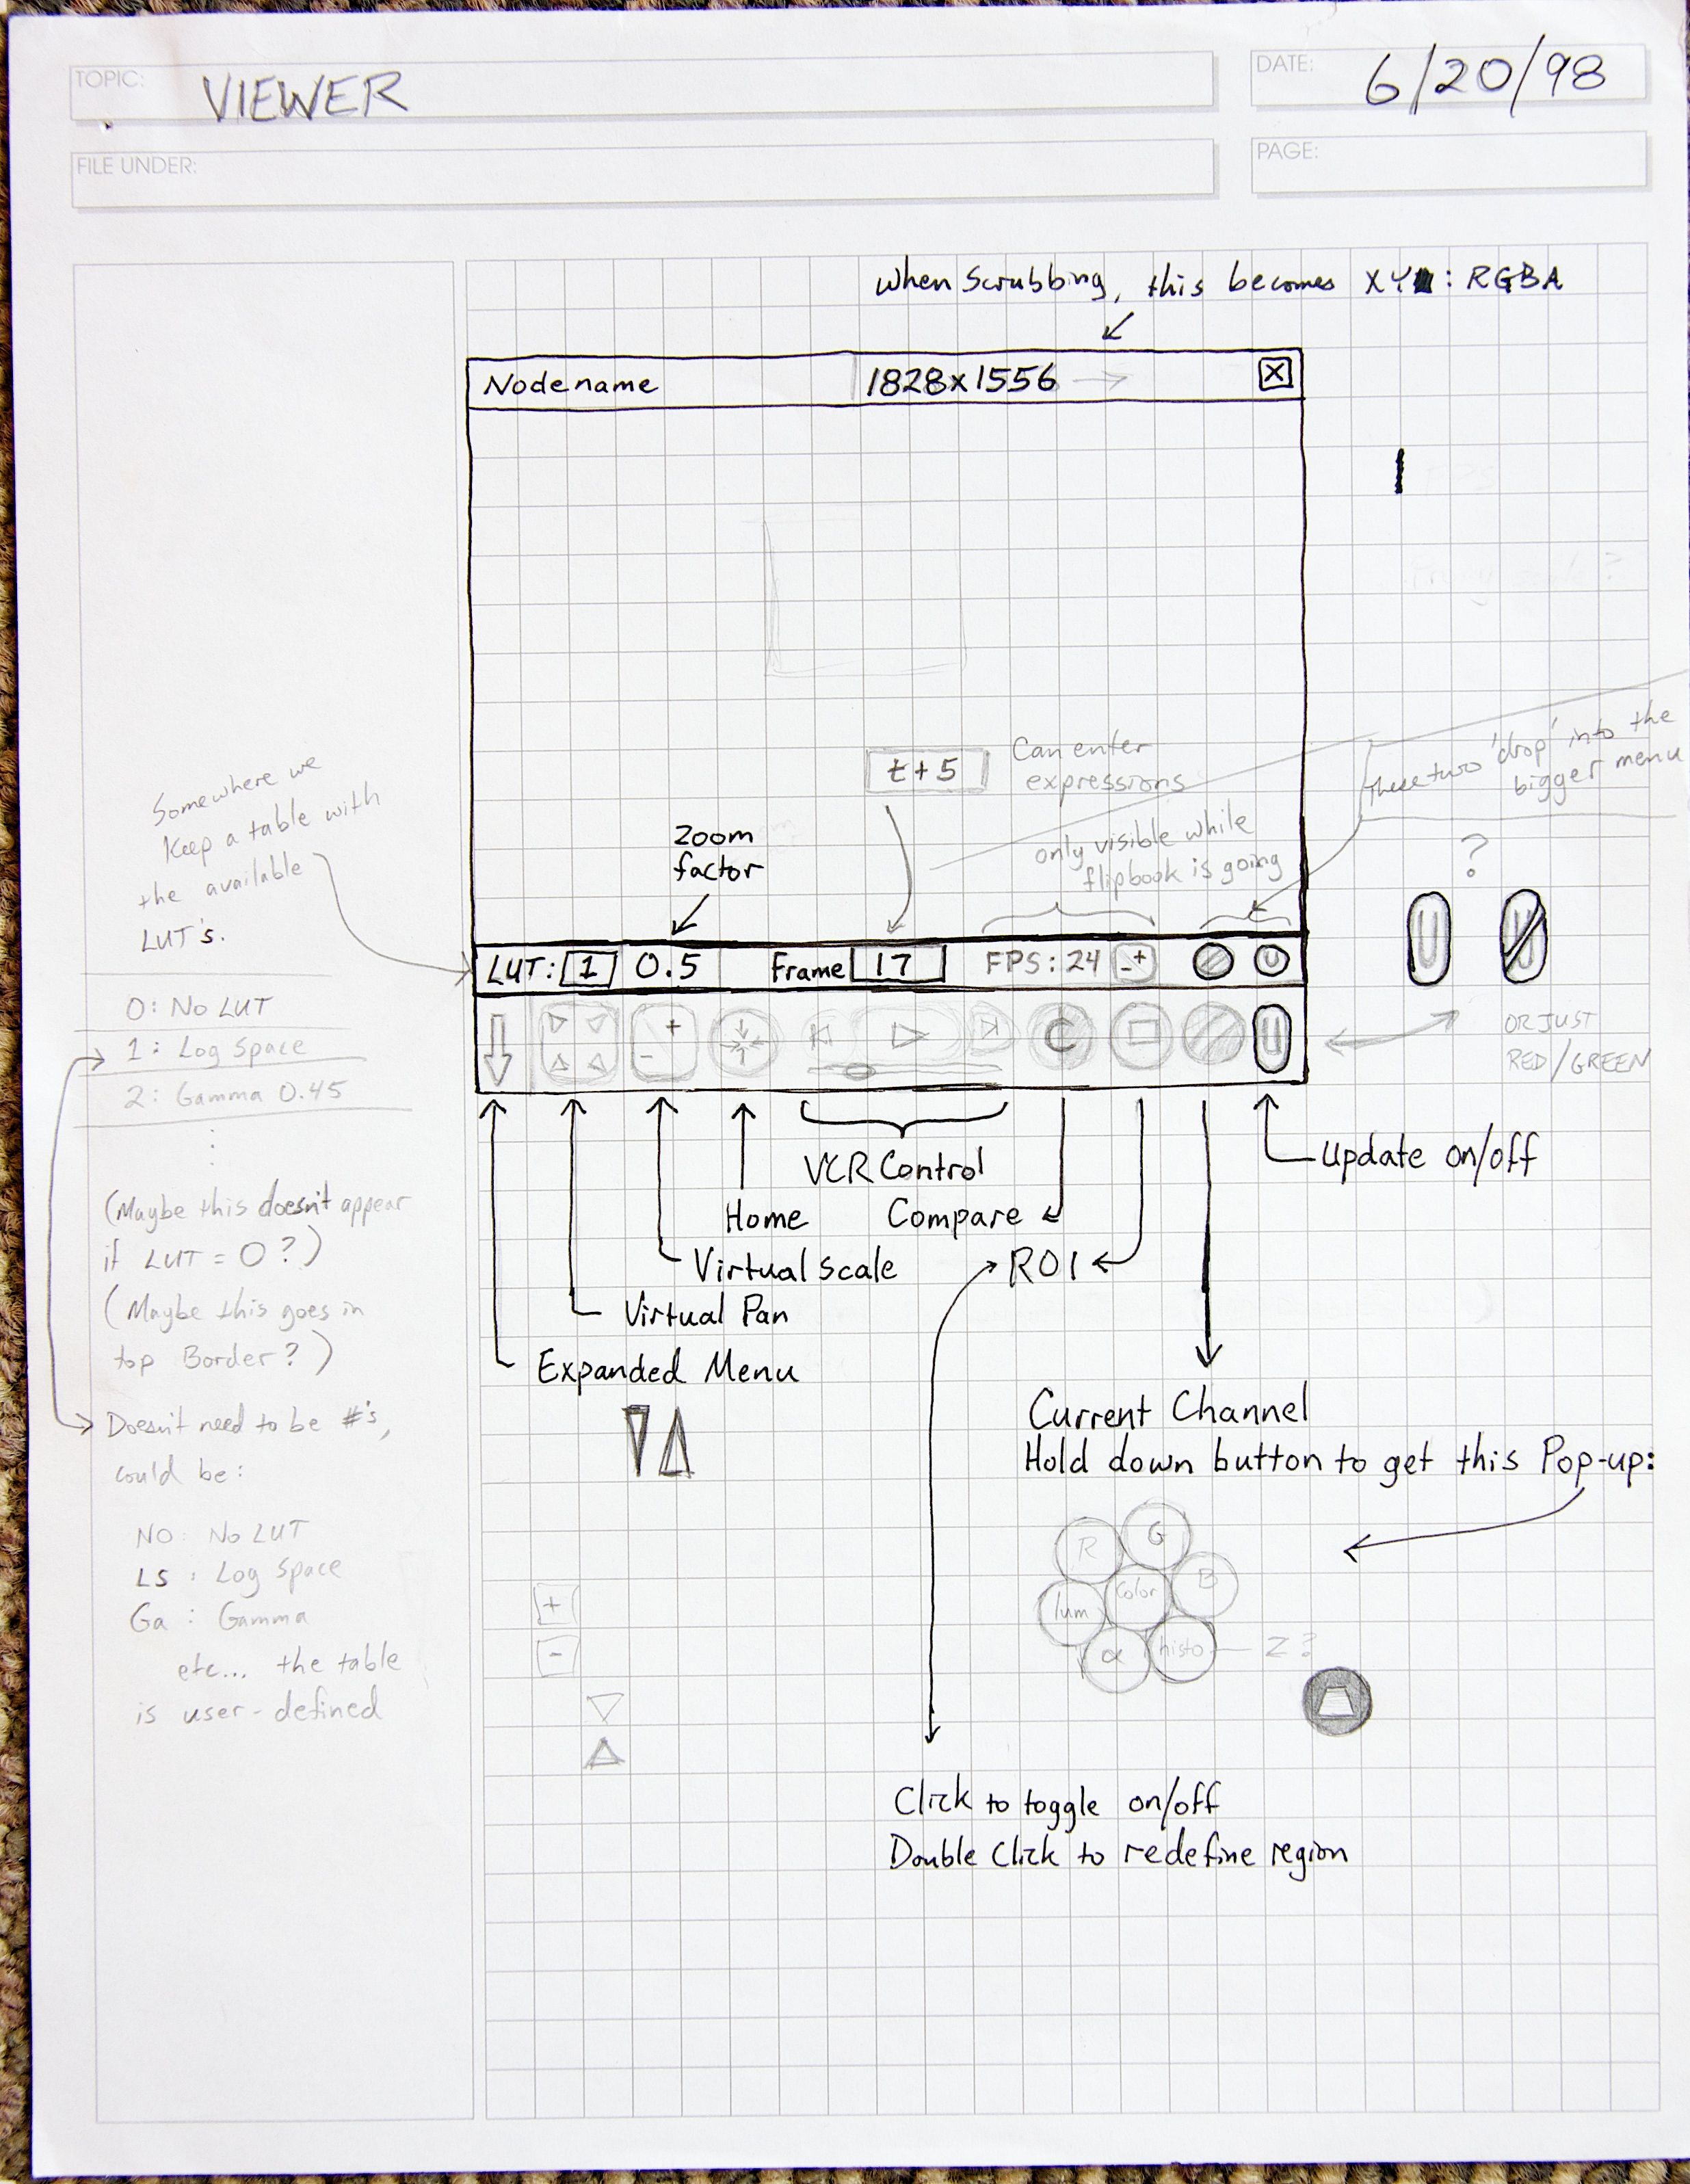 TOPIC: VIEWER
DATE: 6/20/98
FILE UNDER:
PAGE:
When Scrubbing, this becomes XY : RGBA
Node name 1828x1556 X
t+5
Can enter
expressions
These two 'drop' into the
bigger menu
only visible while
flipbook is going
Zoom
factor
?
U U
LUT: 1 0.5 Frame 17 FPS: 24 -+ U
+ - C U
OR JUST
RED/GREEN
Update on/off
VCR Control
Home Compare
Virtual Scale ROI
Virtual Pan
Expanded Menu
Current Channel
Hold down button to get this Pop-up:
R G
lum Color B
α histo Z?
+
-
Click to toggle on/off
Double Click to redefine region
Somewhere we
Keep a table with
the available
LUT's.
0: No LUT
1: Log Space
2: Gamma 0.45
(Maybe this doesn't appear
if LUT = 0?)
(Maybe this goes in
top Border?)
Doesn't need to be #'s,
could be:
NO: No LUT
LS: Log Space
Ga: Gamma
etc... the table
is user-defined